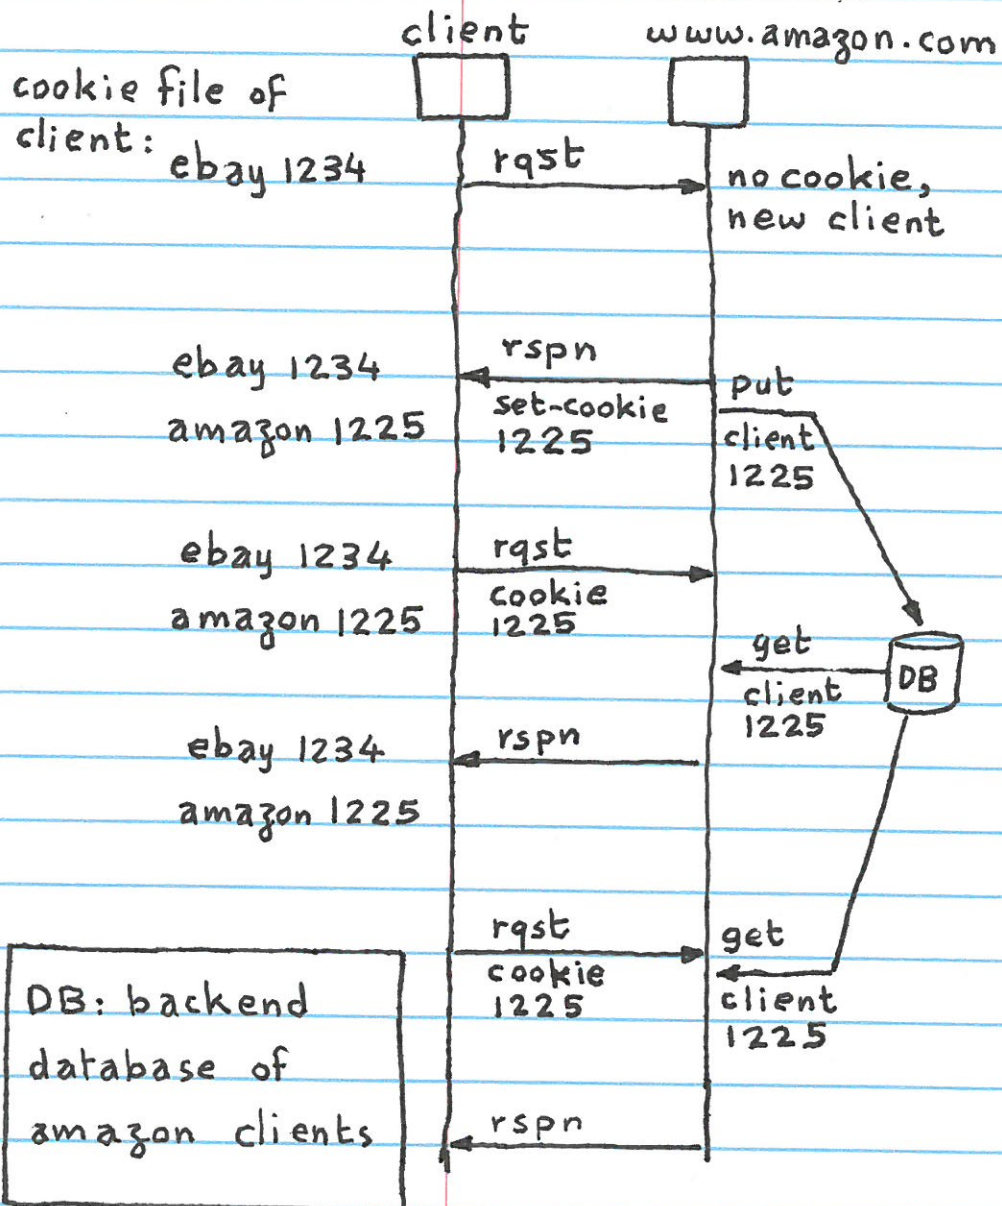 client
www.amazon.com
cookie file of
client:
ebay 1234
rqst
no cookie,
new client
ebay 1234
amazon 1225
rspn
set-cookie
1225
put
client
1225
ebay 1234
amazon 1225
rqst
cookie
1225
get
client
1225
DB
ebay 1234
amazon 1225
rspn
rqst
cookie
1225
get
client
1225
DB: backend
database of
amazon clients
rspn